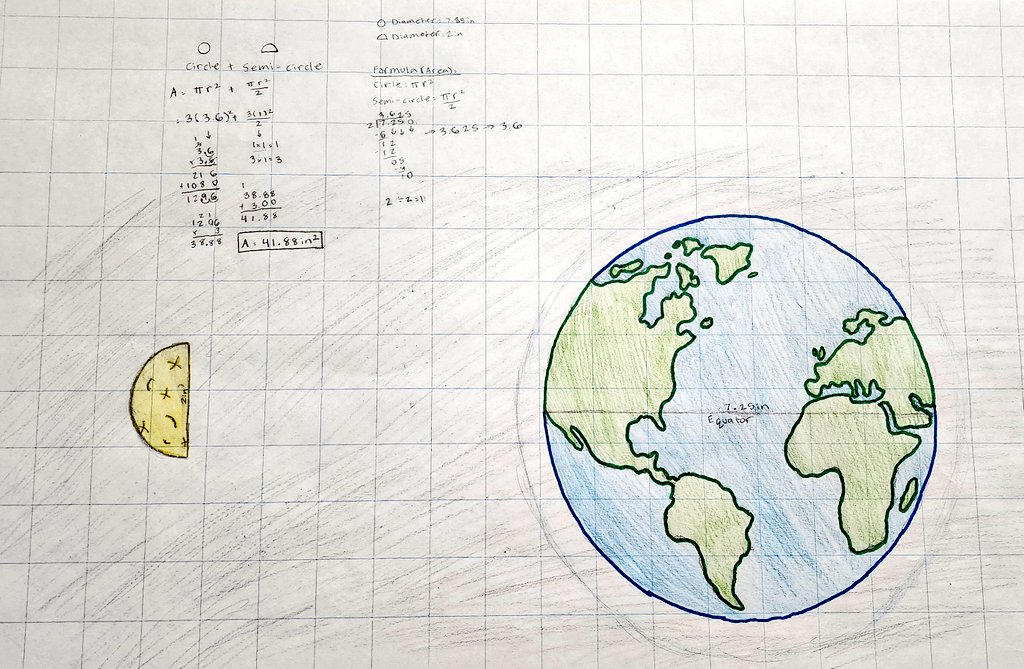 Diameter: 7.25in
Diameter: 2in
Circle + Semi-circle
A = πr² + πr²/2
= 3(3.6)² + 3(1)²/2
3.6
× 3.6
21 6
+10 8 0
12.96
21
12.96
× 3
38.88
1×1=1
3×1=3
1
38.88
+ 3.00
41.88
A = 41.88in²
Formula (Area):
Circle: πr²
Semi-circle: πr²/2
3.625
2 7.250
→ 3.625 → 3.6
-6
12
-12
05
-4
10
2÷2=1
2in
7.25in
Equator